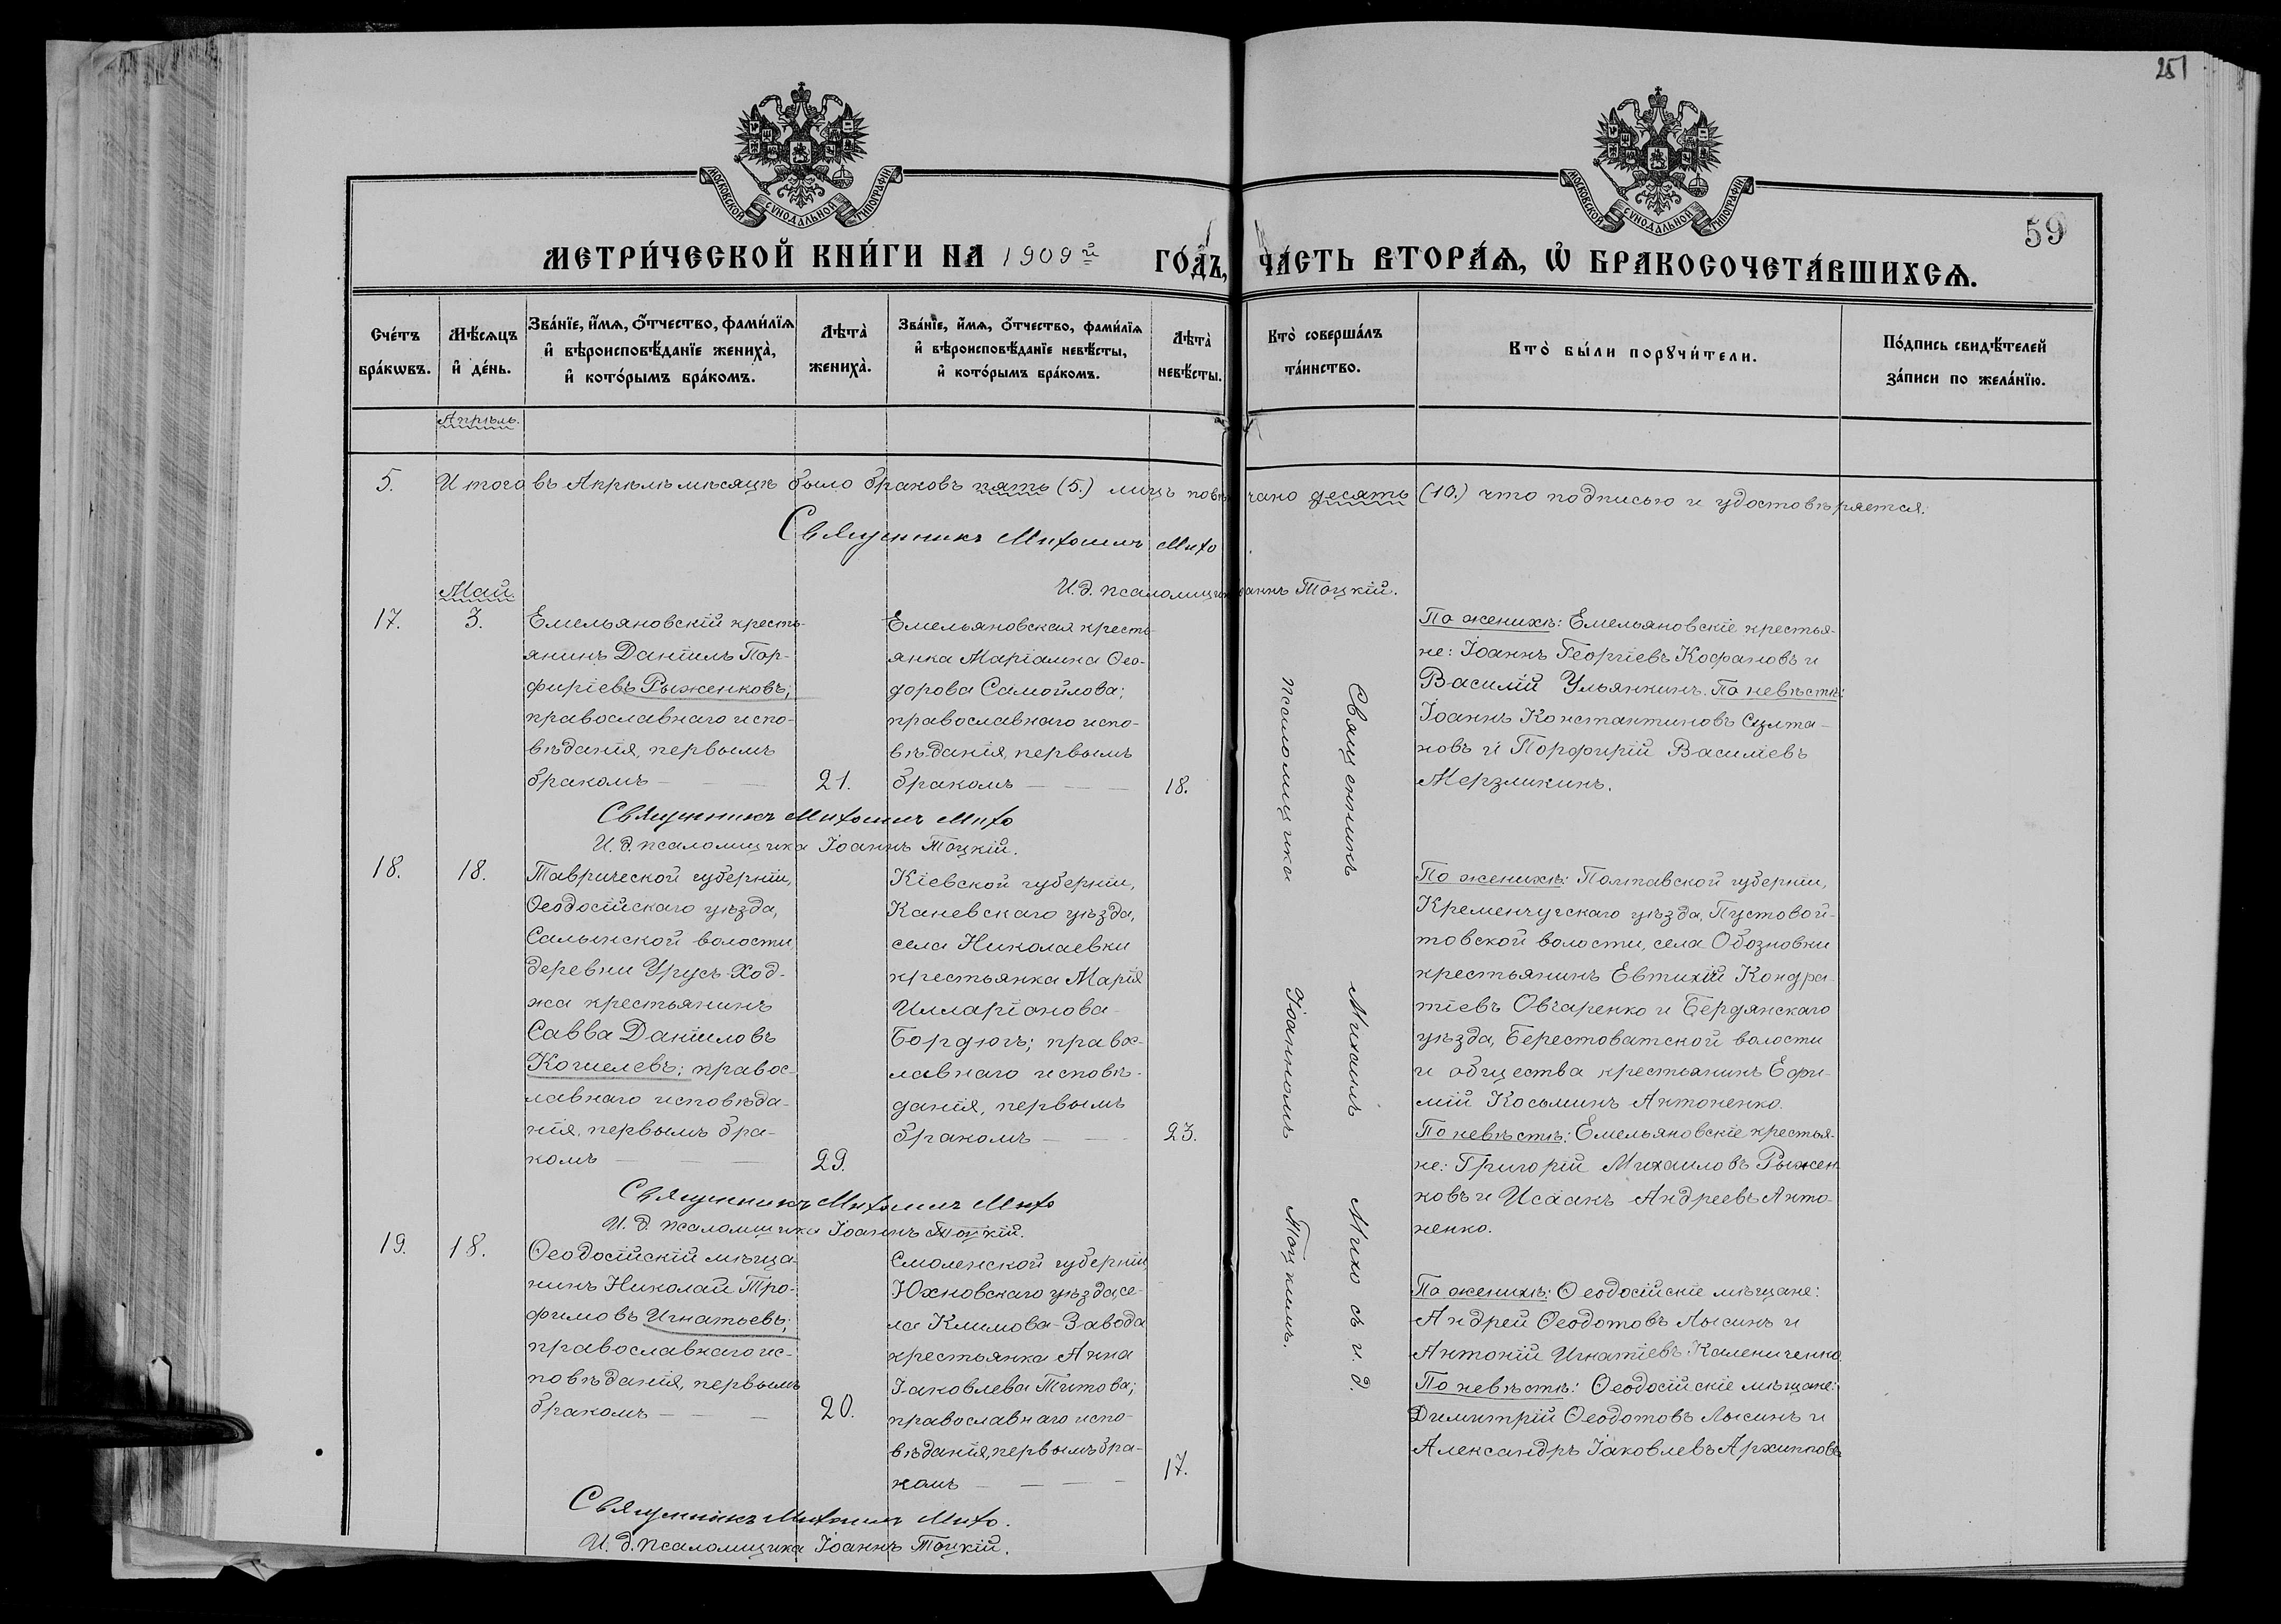 251
МОСКОВСКОЙ СѴНОДАЛЬНОЙ ТИПОГРАФІИ
МОСКОВСКОЙ СѴНОДАЛЬНОЙ ТИПОГРАФІИ
59
МЕТРИ́ЧЕСКОЙ КНИ́ГИ НА 1909й ГО́ДЪ, ЧА́СТЬ ВТОРА́Ѧ, Ѽ БРАКОСОЧЕТА́ВШИХСѦ.
Сче́тъ
бра́кѡвъ.
Мѣ́сяцъ
и҆ де́нь.
Зва́нїе, и҆́мѧ, Ѻ҆́тчество, фами́лїѧ
и҆ вѣроисповѣ́данїе жениха̀,
и҆ кото́рымъ бра́комъ.
Лѣта̀
жениха̀.
Зва́нїе, и҆́мѧ, Ѻ҆́тчество, фами́лїѧ
и҆ вѣроисповѣ́данїе невѣ́сты,
и҆ кото́рымъ бра́комъ.
Лѣта̀
невѣ́сты.
Кто̀ соверша́лъ
та́инство.
Кто̀ бы́ли порꙋчи́тели.
По́дпись свидѣ́телей
за́писи по жела́нїю.
Апрѣль.
5. Итого въ Апрѣлѣ мѣсяцѣ было браковъ пять (5.) лицъ повѣнчано десять (10.) что подписью и удостовѣряется:
Священникъ Михаилъ Михо
И. д. псаломщика Іоаннъ Тоцкій.
Май.
17.
3.
Емельяновскій кресть-
янинъ Даніилъ Пор-
фиріевъ Рыженковъ;
православнаго испо-
вѣданія, первымъ
бракомъ —
21.
Емельяновская кресть-
янка Маріамна Ѳео-
дорова Самойлова;
православнаго испо-
вѣданія, первымъ
бракомъ —
18.
По женихѣ: Емельяновскіе крестья-
не: Іоаннъ Георгіевъ Кофановъ и
Василій Ульянкинъ. По невѣстѣ:
Іоаннъ Константиновъ Султа-
новъ и Порфирій Василіевъ
Мерзликинъ.
Священникъ Михаилъ Михо
И. д. псаломщика Іоаннъ Тоцкій.
18.
18.
Таврической губерніи,
Ѳеодосійскаго уѣзда,
Салынской волости
деревни Урусъ-Ход-
жа крестьянинъ
Савва Даніиловъ
Кошелевъ; правос-
лавнаго исповѣда-
нія, первымъ бра-
комъ —
29.
Кіевской губерніи,
Каневскаго уѣзда,
села Николаевки
крестьянка Марія
Илларіонова
Бордюгъ; правос-
лавнаго исповѣ-
данія, первымъ
бракомъ —
23.
Священникъ Михаилъ Михо съ и. д.
псаломщика Іоанномъ Тоцкимъ.
По женихѣ: Полтавской губерніи,
Кременчугскаго уѣзда, Пустовой-
товской волости, села Обозновки
крестьянинъ Евтихій Кондра-
тіевъ Овчаренко и Бердянскаго
уѣзда, Берестоватской волости
и общества крестьянинъ Ефи-
мій Косьминъ Антоненко.
По невѣстѣ: Емельяновскіе крестья-
не: Григорій Михаиловъ Рыжен-
ковъ и Исаакъ Андреевъ Анто-
ненко.
Священникъ Михаилъ Михо
И. д. псаломщика Іоаннъ Тоцкій.
19.
18.
Ѳеодосійскій мѣща-
нинъ Николай Тро-
фимовъ Игнатьевъ;
православнаго ис-
повѣданія, первымъ
бракомъ —
20.
Смоленской губерніи
Юхновскаго уѣзда, се-
ла Климова-Завода
крестьянка Анна
Іаковлева Титова;
православнаго испо-
вѣданія, первымъ бра-
комъ —
17.
По женихѣ: Ѳеодосійскіе мѣщане:
Андрей Ѳеодотовъ Лысинъ и
Антоній Игнатіевъ Калениченко.
По невѣстѣ: Ѳеодосійскіе мѣщане:
Димитрій Ѳеодотовъ Лысинъ и
Александръ Іаковлевъ Архиповъ
Священникъ Михаилъ Михо.
И. д. псаломщика Іоаннъ Тоцкій.